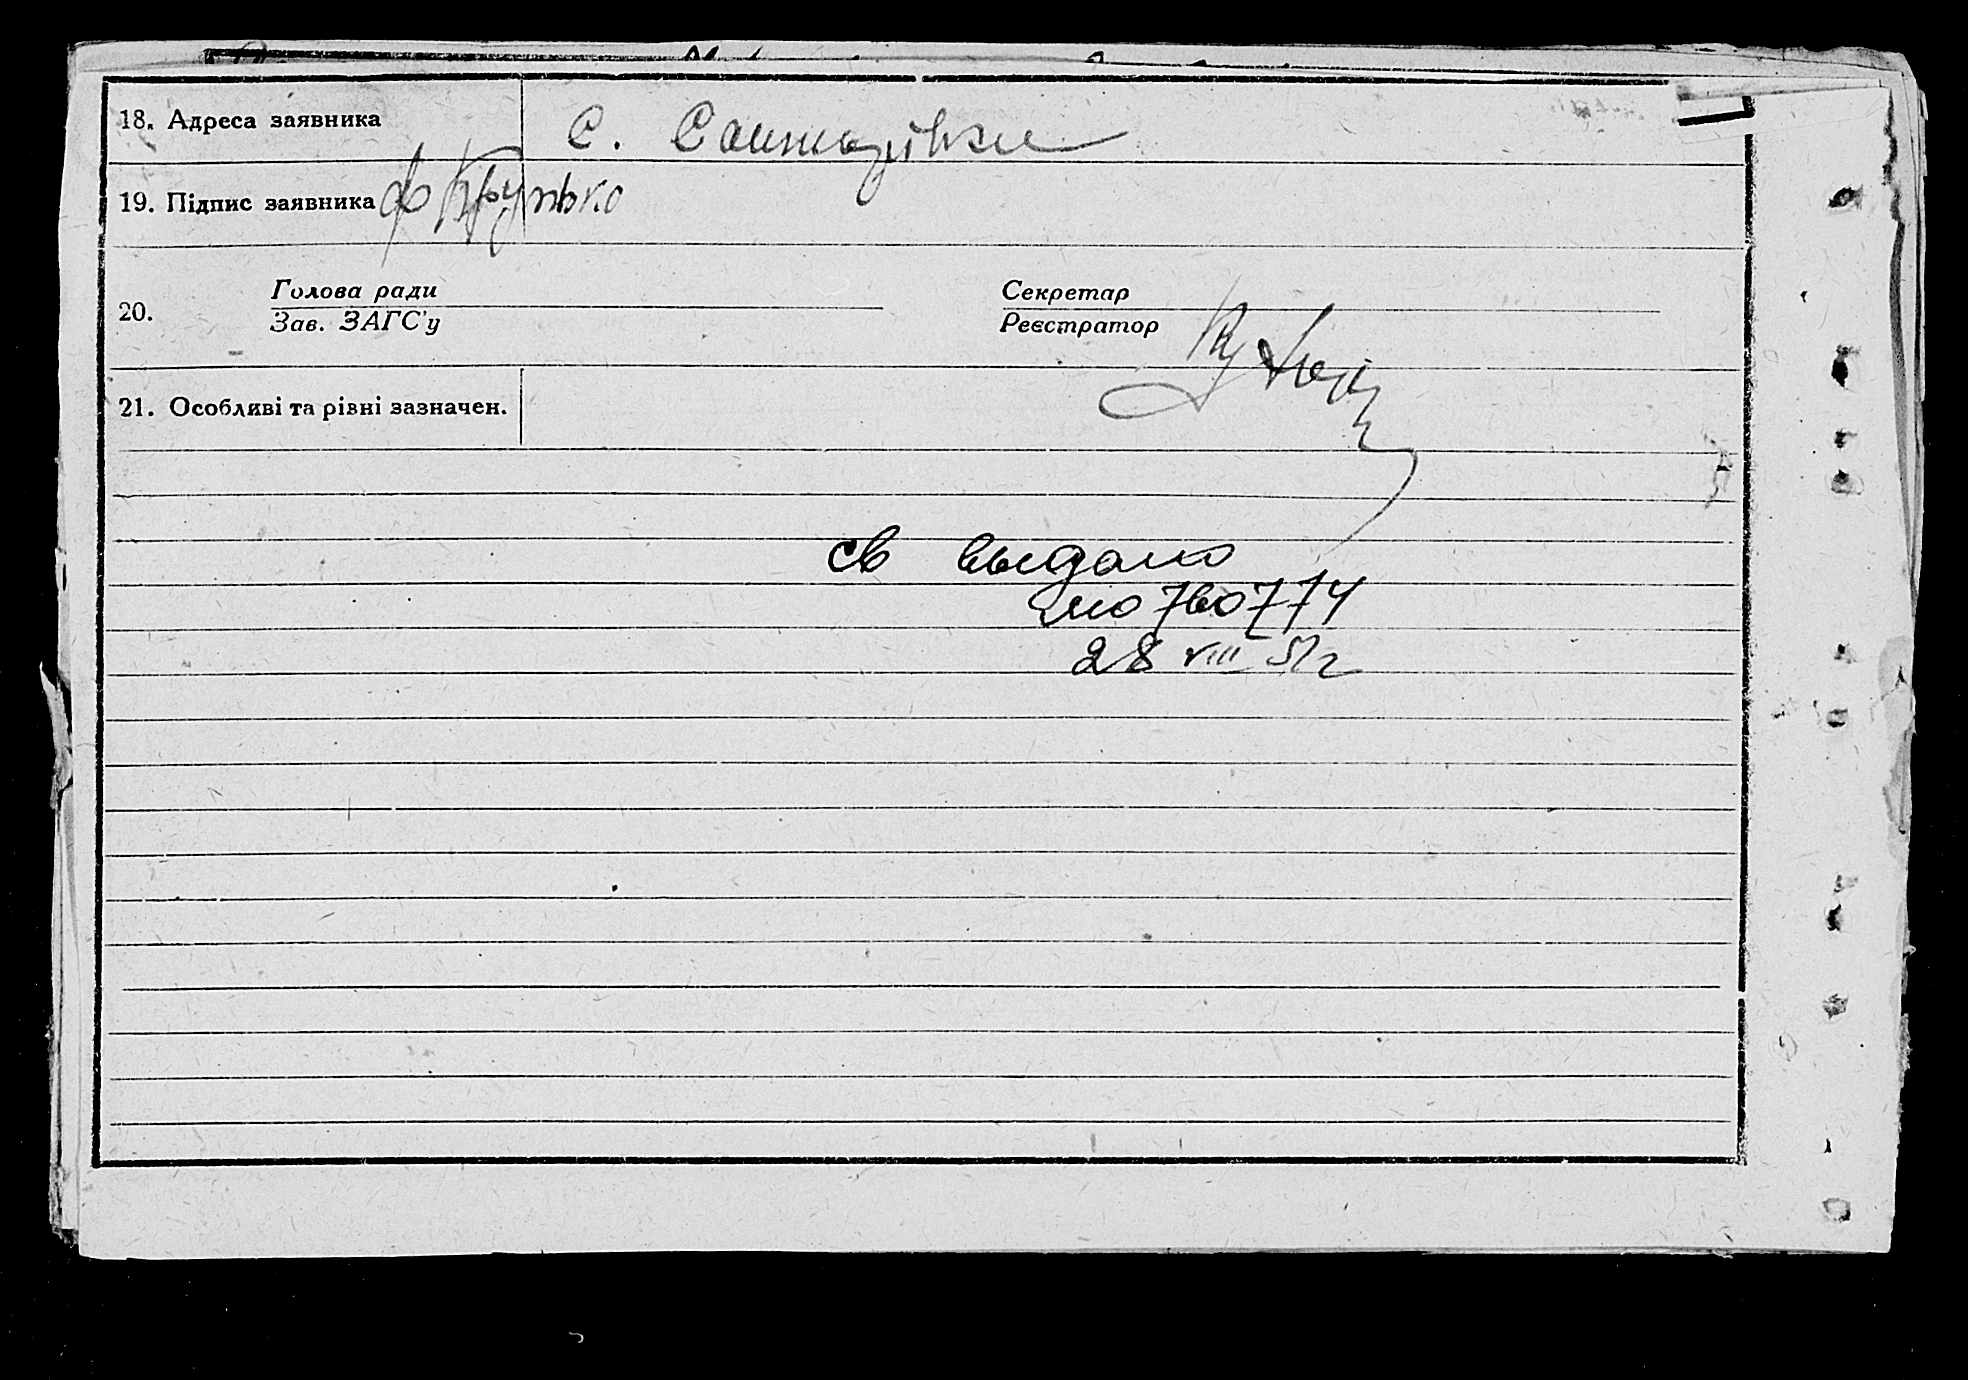 18. Адреса заявника С.
19. Підпис заявника Ф Крупько
20. Голова ради Секретар
Зав. ЗАГС'у Реєстратор
21. Особливі та рівні зазначен.
св выдано
760774
28 VIII 51г